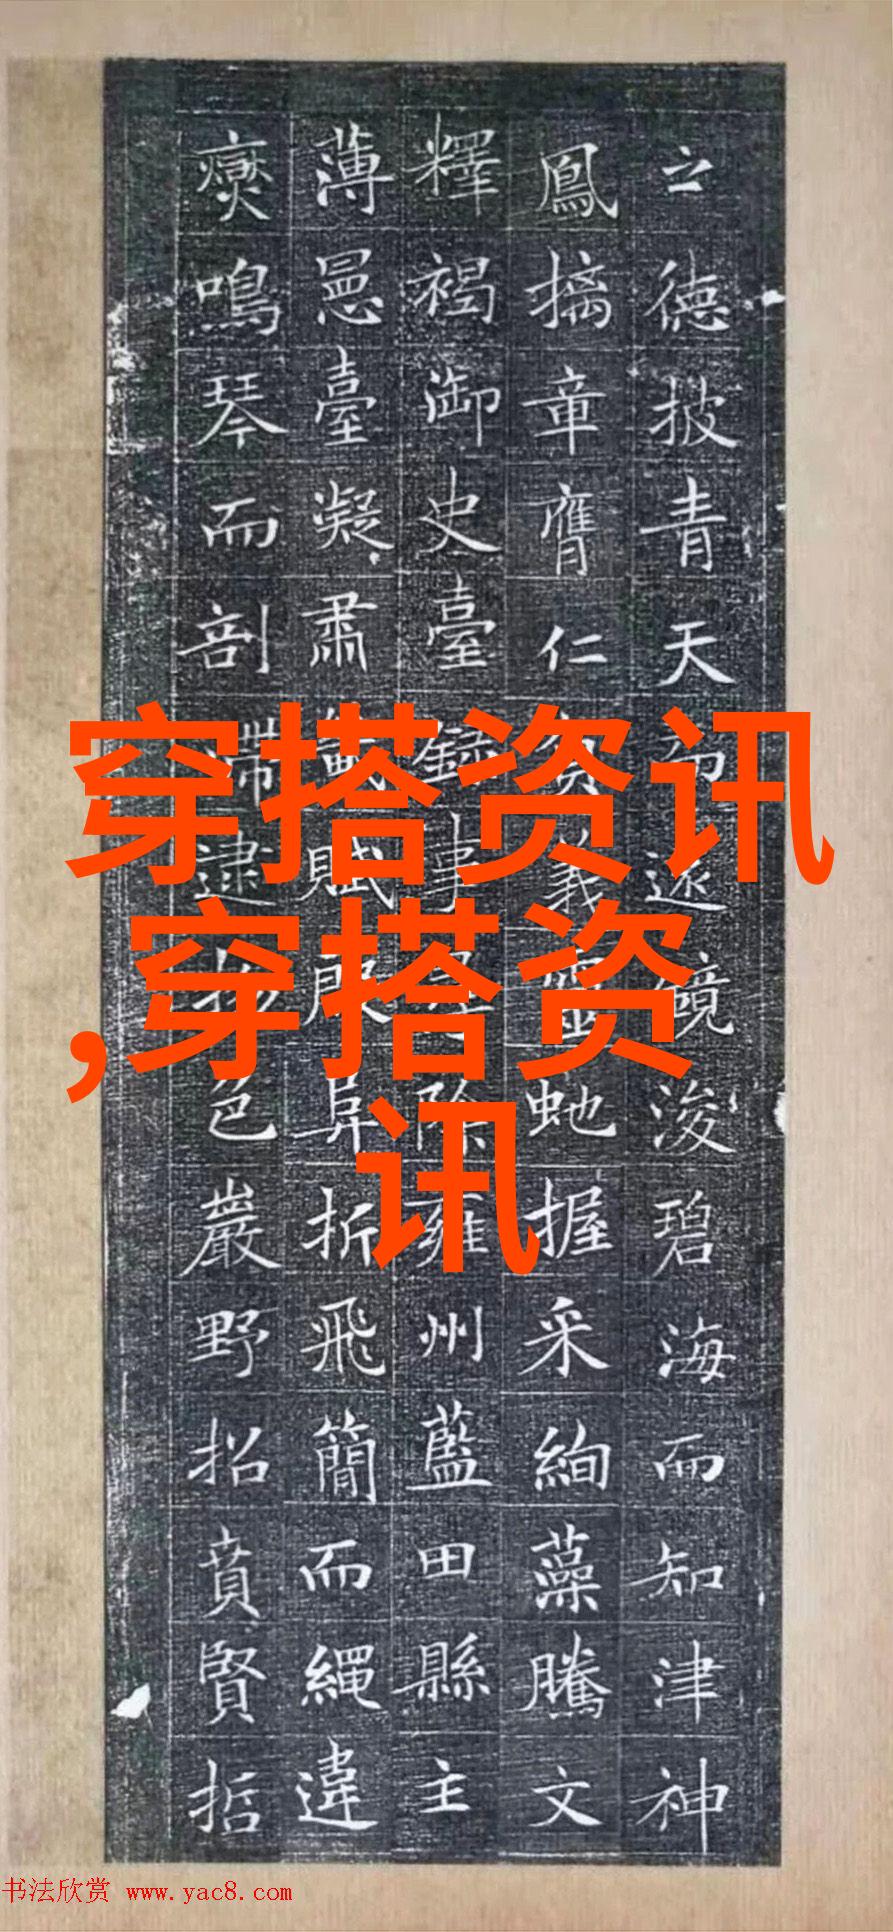 之德披青天而遂鏡浚碧海而知津神
鳳摛章膺仁義靈虵握采絢藻騰文
釋褐御史臺錄事除雍州藍田縣主
薄邑臺凝肅賦阜折飛簡而繩違
爕鳴琴而剖滯逮色巖野招賁賢哲
穿搭资讯
,穿搭资
讯
书法欣赏 www.yac8.com